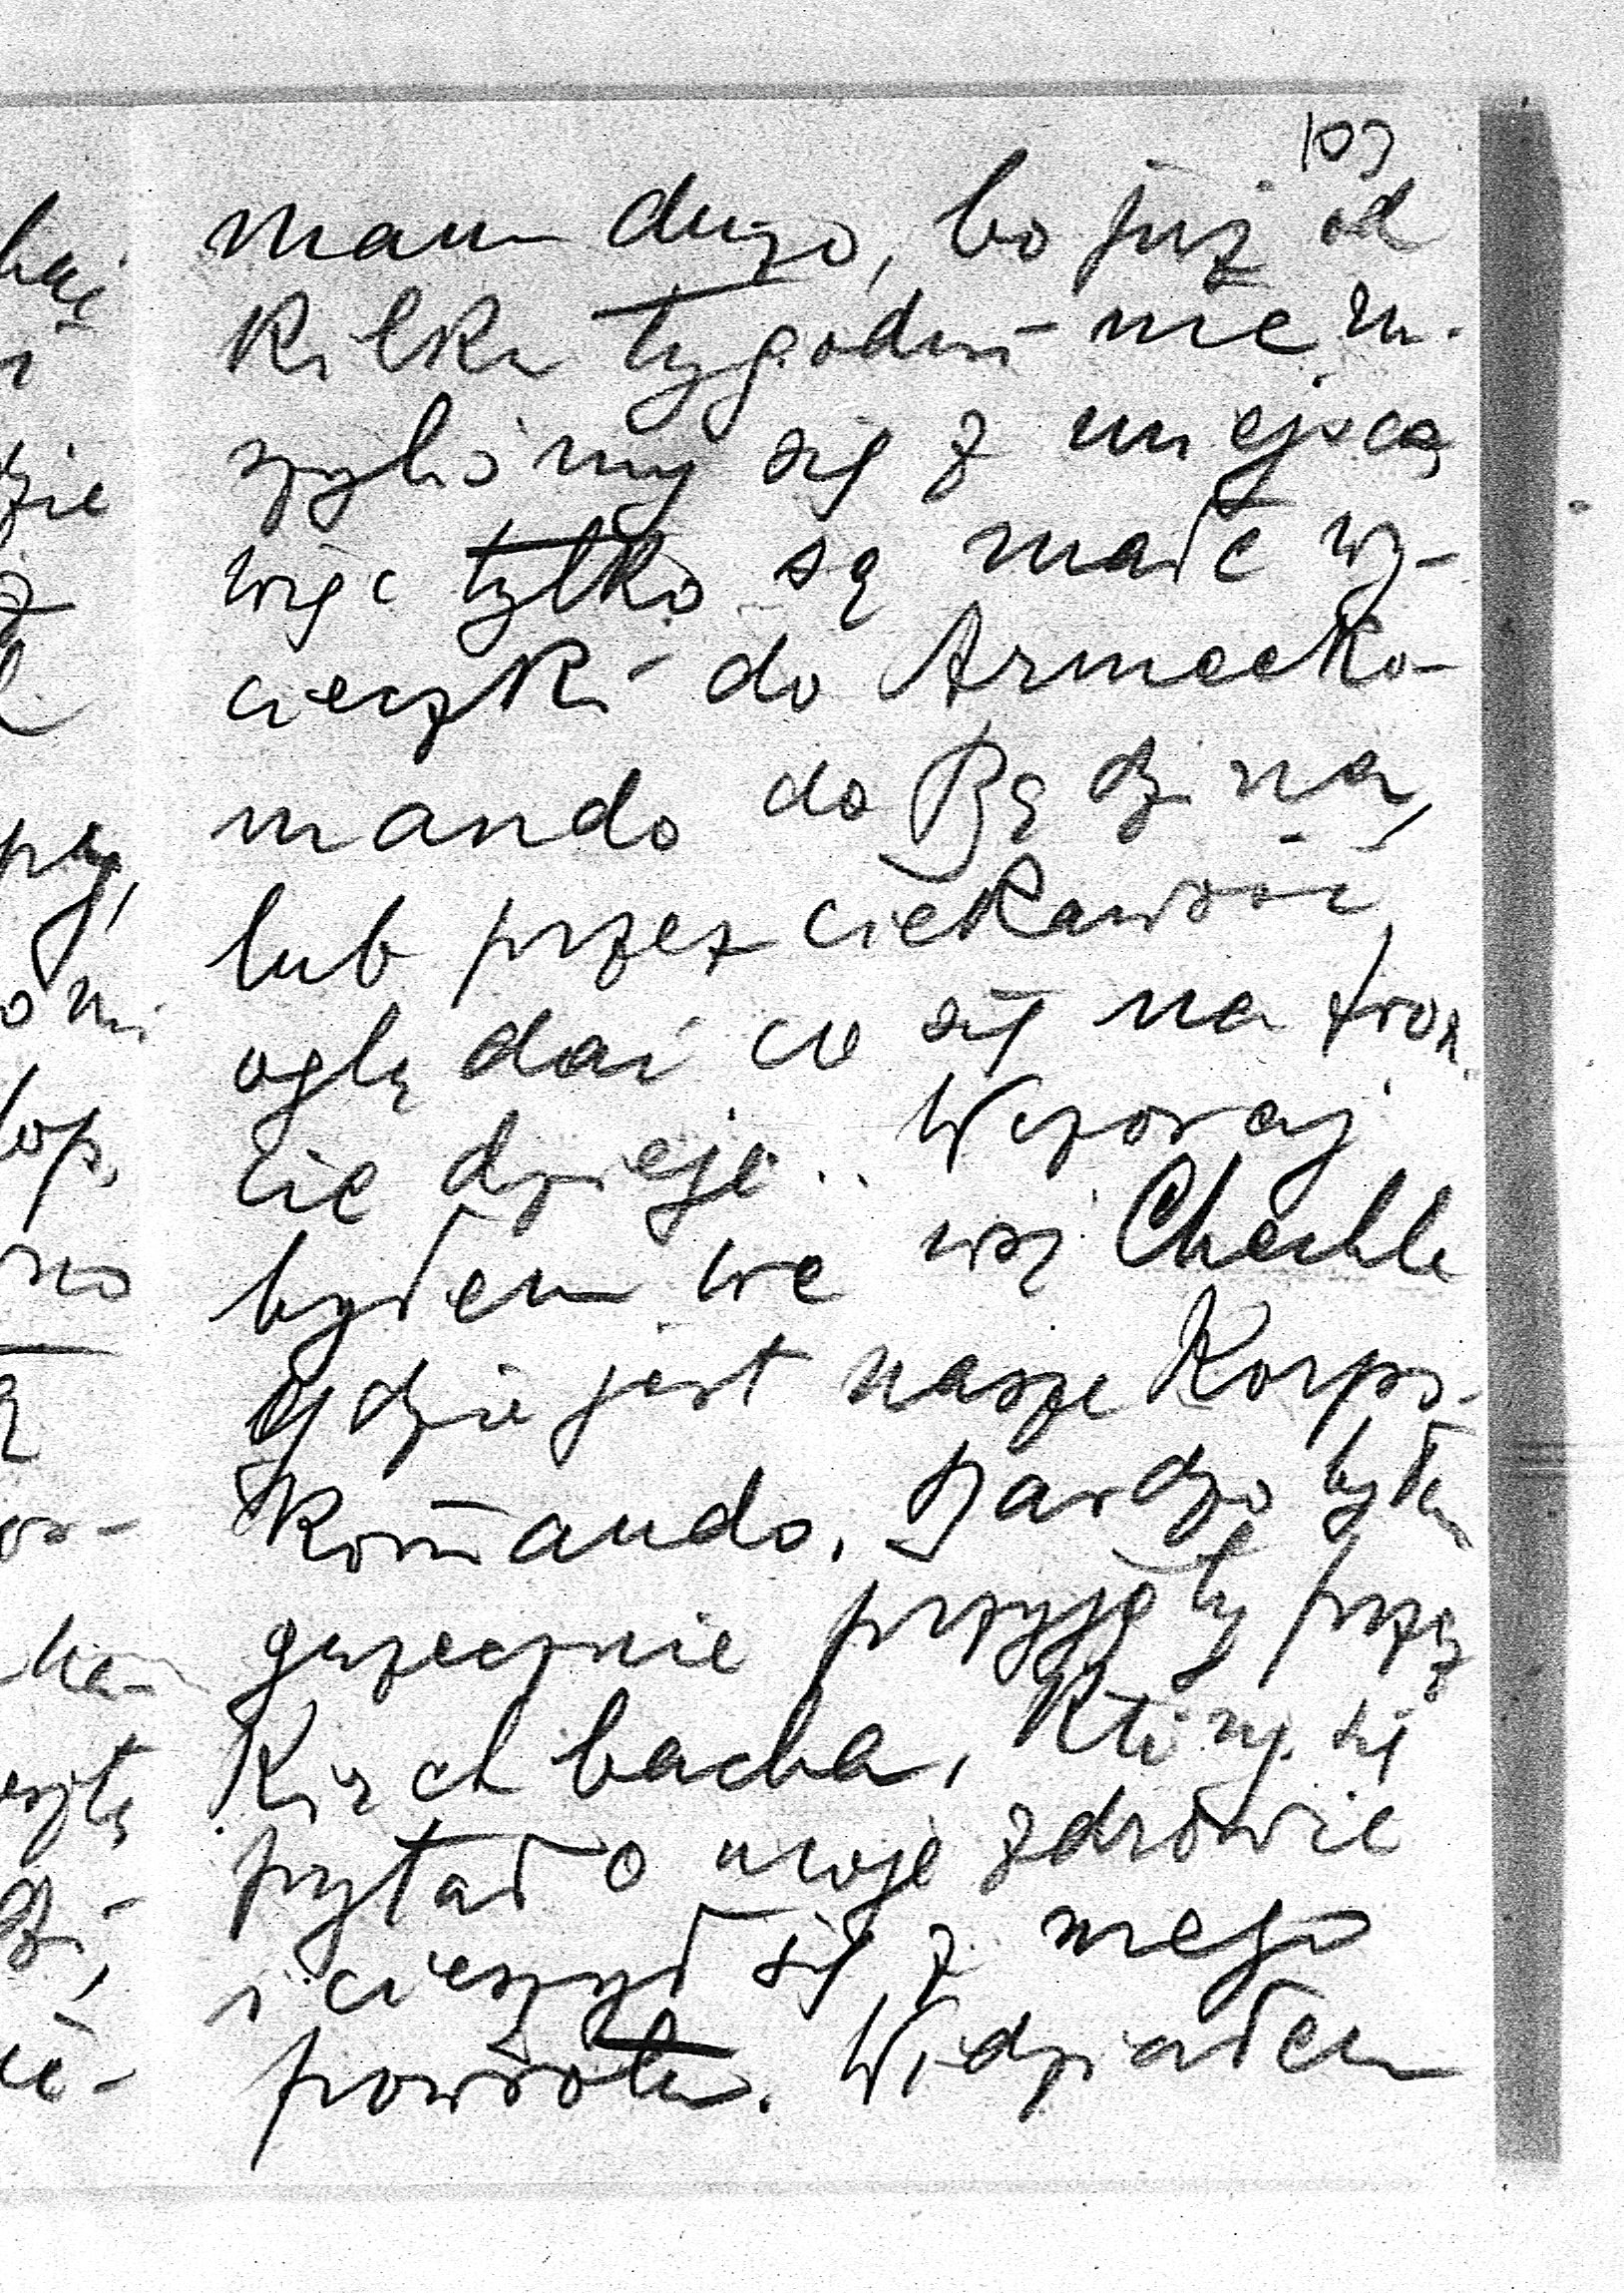 103
mam dużo, bo już od
kilku tygodni nie ru-
szyliśmy się z miejsca
więc tylko są małe wy-
cieczki do Armeeko-
mando do Będzina,
lub przez ciekawość
oglądać co się na fron-
cie dzieje.. Wczoraj
byłem we wsi Chechle
gdzie jest nasze Korps-
komando. Bardzo byłem
grzecznie przyjęty przez
Kirchbacha, który się
pytał o moje zdrowie
i cieszył się z mego
powrotu. Widziałem